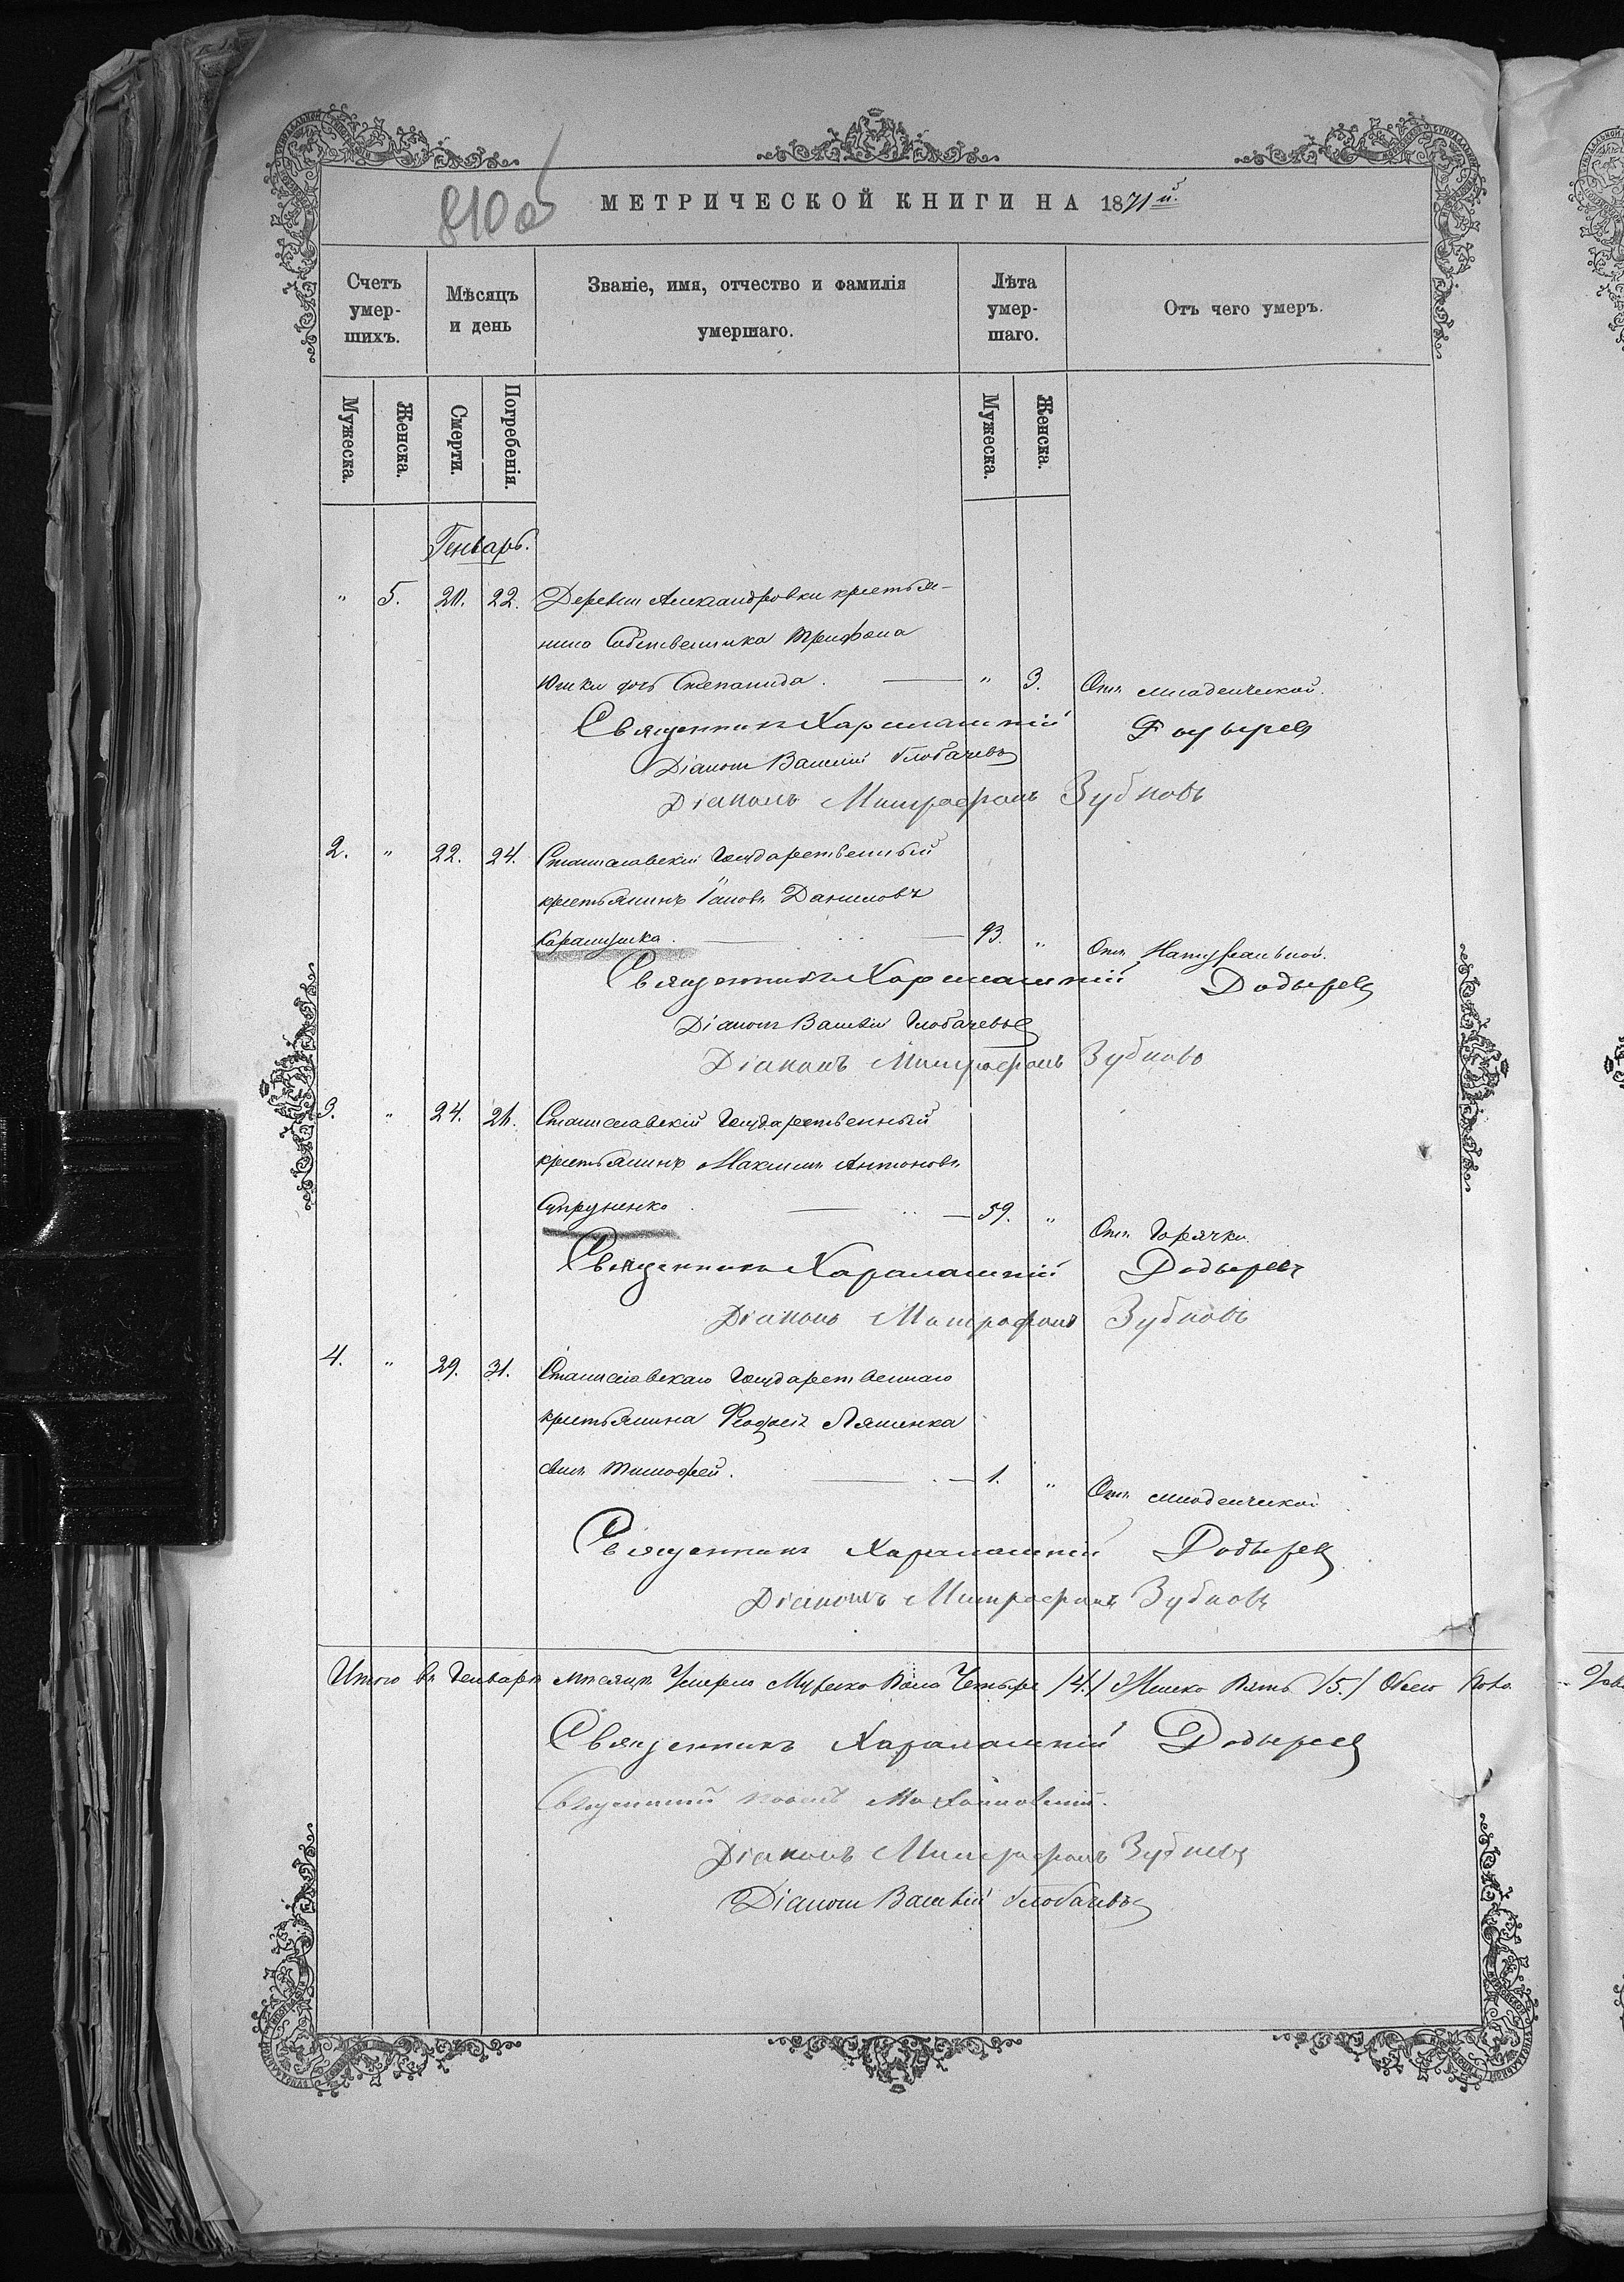 810 об
МЕТРИЧЕСКОЙ КНИГИ НА 1871й.
Счетъ умершихъ.
Мѣсяцъ и день
Званіе, имя, отчество и фамилія умершаго.
Лѣта умершаго.
Отъ чего умеръ.
Мужеска. Женска. Смерти. Погребенія. Мужеска. Женска.
Генварь.
" 5. 20. 22. Деревни Александровки крестья-
нина Собственника Трифона
Юшки дочь Степанида. " 3. Отъ младенческой.
Священникъ Харалампій Додыревъ
Діаконъ Василій Глобачевъ
Діаконъ Митрофанъ Зубковъ
2. " 22. 24. Станиславскій Государственный
крестьянинъ Іаковъ Даниловъ
Карапузика. 93. " Отъ Натуральной.
Священникъ Харалампій Додыревъ
Діаконъ Василій Глобачевъ
Діаконъ Митрофанъ Зубковъ
3. " 24. 26. Станиславскій Государственный
крестьянинъ Максимъ Антоновъ
Супруненко 59. " Отъ Горячки.
Священникъ Харалампій Додыревъ
Діаконъ Митрофанъ Зубковъ
4. " 29. 31. Станиславскаго Государственнаго
крестьянина Ляшенка
сынъ Тимофей. 1. " Отъ младенческой
Священникъ Харалампій Додыревъ
Діаконъ Митрофанъ Зубковъ
Итого въ Генварѣ мѣсяцѣ Умерло Мужеска Пола Четыре /4./ Женска Пять /5./ Обоего Пола
Священникъ Харалампій Додыревъ
Священникъ
Діаконъ Митрофанъ Зубковъ
Діаконъ Василій Глобачевъ